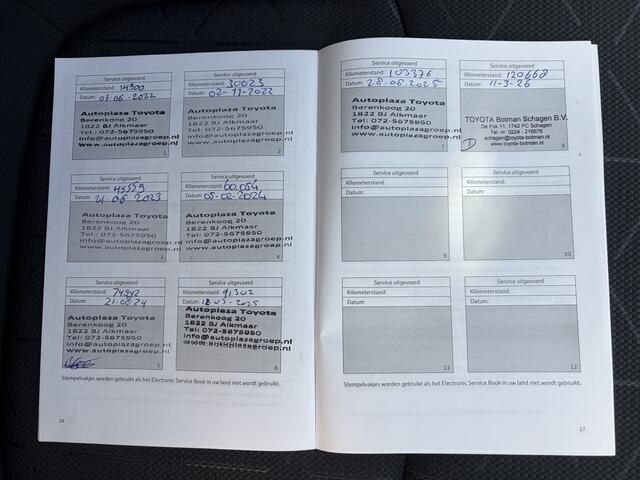 Service uitgevoerd
Kilometerstand: 14900
Datum: 07-06-2022
Autoplaza Toyota
Berenkoog 20
1822 BJ Alkmaar
Tel.: 072-5675950
info@autoplazagroep.nl
www.autoplazagroep.nl
1
Service uitgevoerd
Kilometerstand: 30023
Datum: 02-11-2022
Autoplaza Toyota
Berenkoog 20
1822 BJ Alkmaar
Tel.: 072-5675950
info@autoplazagroep.nl
www.autoplazagroep.nl
2
Service uitgevoerd
Kilometerstand: 45559
Datum: 21-06-2023
Autoplaza Toyota
Berenkoog 20
1822 BJ Alkmaar
Tel.: 072-5675950
info@autoplazagroep.nl
www.autoplazagroep.nl
3
Service uitgevoerd
Kilometerstand: 60.054
Datum: 05-02-2024
Autoplaza Toyota
Berenkoog 20
1822 BJ Alkmaar
Tel.: 072-5675950
info@autoplazagroep.nl
www.autoplazagroep.nl
4
Service uitgevoerd
Kilometerstand: 74942
Datum: 21-08-24
Autoplaza Toyota
Berenkoog 20
1822 BJ Alkmaar
Tel.: 072-5675950
info@autoplazagroep.nl
www.autoplazagroep.nl
5
Service uitgevoerd
Kilometerstand: 91302
Datum: 12-03-2025
Autoplaza Toyota
Berenkoog 20
1822 BJ Alkmaar
Tel.: 072-5675950
info@autoplazagroep.nl
www.autoplazagroep.nl
6
Stempelvakjes worden gebruikt als het Electronic Service Book in uw land niet wordt gebruikt.
26
Service uitgevoerd
Kilometerstand: 103376
Datum: 28-08-2025
Autoplaza Toyota
Berenkoog 20
1822 BJ Alkmaar
Tel.: 072-5675950
info@autoplazagroep.nl
www.autoplazagroep.nl
7
Service uitgevoerd
Kilometerstand: 120668
Datum: 11-3-26
TOYOTA Botman Schagen B.V.
De Fok 11, 1742 PC Schagen
Tel. nr. 0224 - 216676
schagen@toyota-botman.nl
www.toyota-botman.nl
8
Service uitgevoerd
Kilometerstand:
Datum:
9
Service uitgevoerd
Kilometerstand:
Datum:
10
Service uitgevoerd
Kilometerstand:
Datum:
11
Service uitgevoerd
Kilometerstand:
Datum:
12
Stempelvakjes worden gebruikt als het Electronic Service Book in uw land niet wordt gebruikt.
27